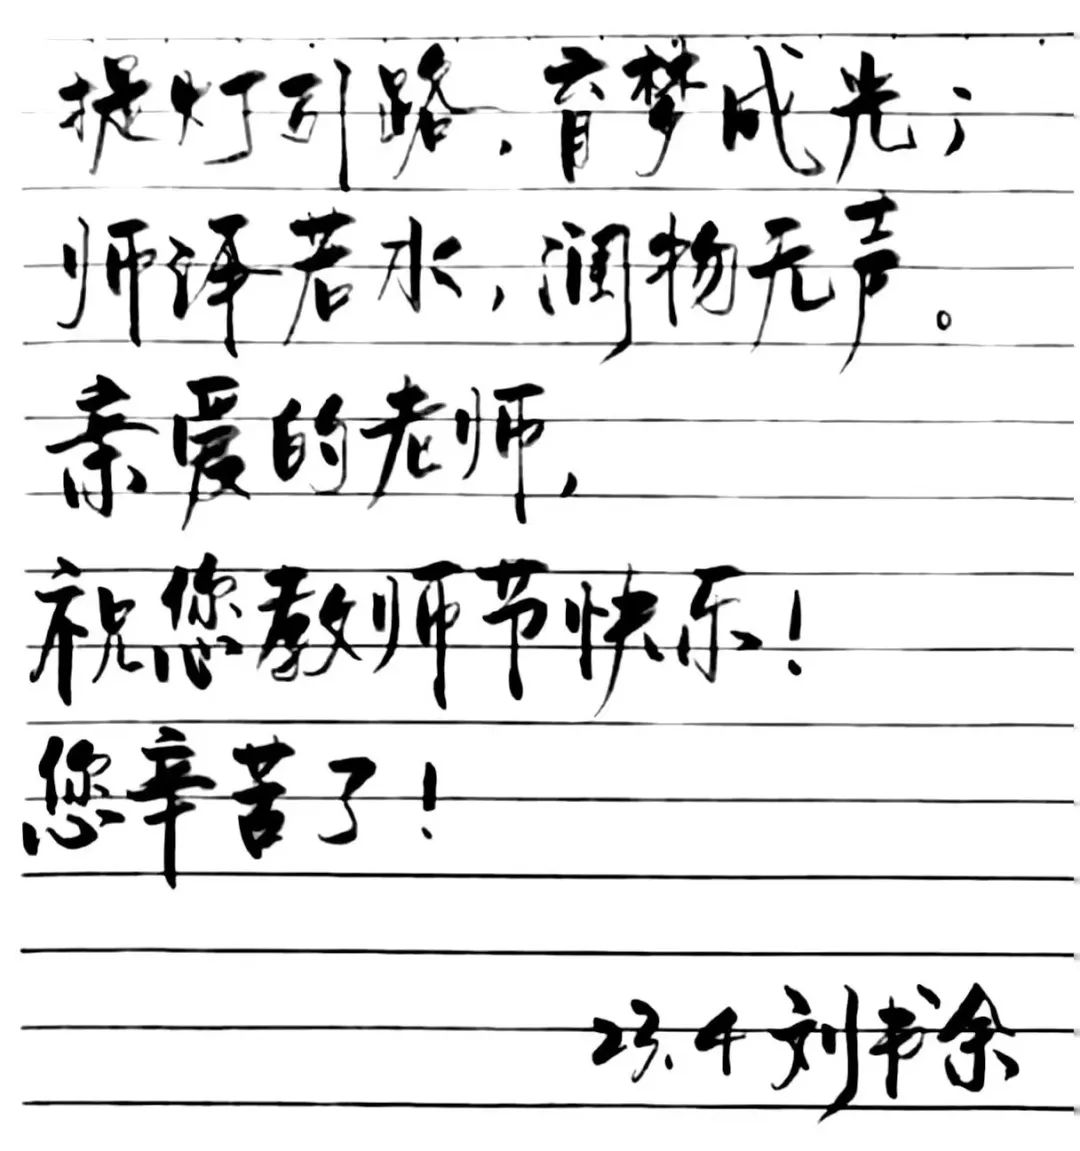 提灯引路，育梦成光；
师泽若水，润物无声。
亲爱的老师，
祝您教师节快乐！
您辛苦了！
23.4 刘书余